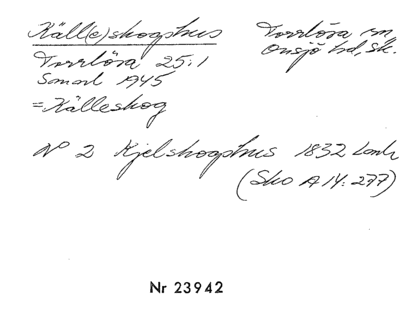 Käll(e)skogshus
Torrlösa sn
Onsjö hd, Sk.
Torrlösa 25:1
1945
=Källeskog
No 2 Kjelskogshus 1832
(Sko A 14:277)
Nr 23942